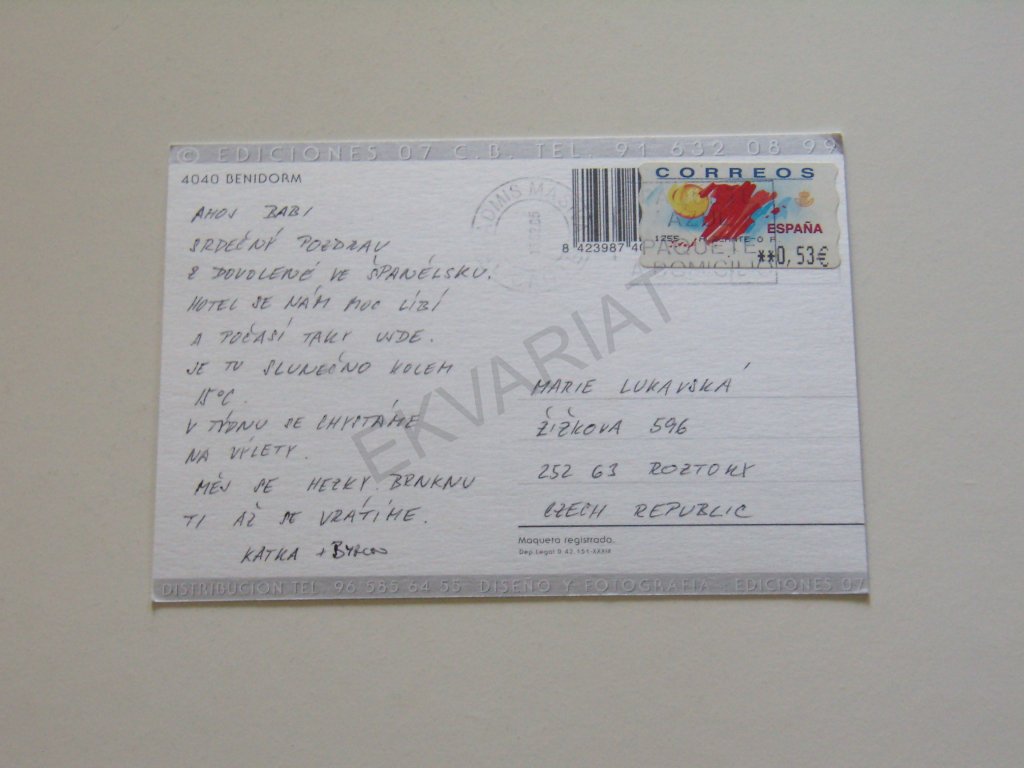 © EDICIONES 07 C.B. TEL. 91 632 08 99
4040 BENIDORM
AHOJ BABI
SRDEČNÝ POZDRAV
Z DOVOLENÉ VE ŠPANĚLSKU.
HOTEL SE NÁM MOC LÍBÍ
A POČASÍ TAKY UJDE.
JE TU SLUNEČNO KOLEM
15°C.
V TÝDNU SE CHYSTÁME
NA VÝLETY.
MĚJ SE HEZKY BRNKNU
TI AŽ SE VRÁTÍME.
KATKA +
8 423987
CORREOS
ESPAÑA
**0,53€
PAQUETE
A DOMICILIO
MARIE LUKAVSKÁ
ŽIŽKOVA 596
252 63 ROZTOKY
CZECH REPUBLIC
Maqueta registrada.
Dep. Legal B 42.151-XXXIX
DISTRIBUCION TEL. 96 585 64 55 DISEÑO Y FOTOGRAFIA EDICIONES 07
EKVARIAT